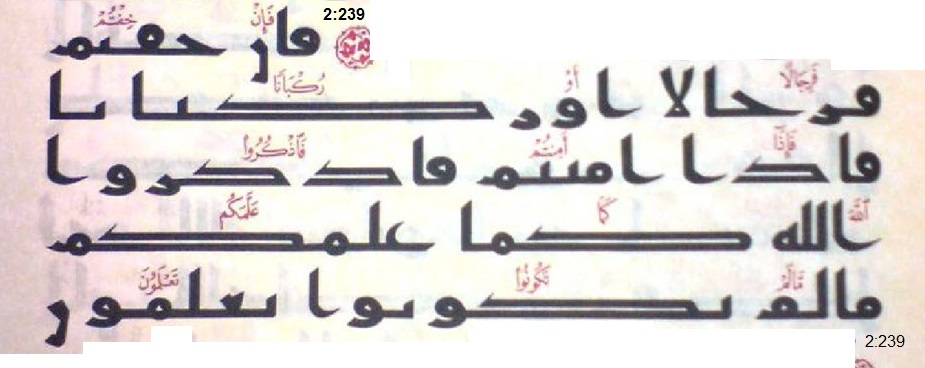 2:239
فَإِنْ خِفْتُمْ
فان خفتم
فَرِجَالًا أَوْ رُكْبَانًا
فرجالا او ركبانا
فَإِذَآ أَمِنتُمْ فَٱذْكُرُوا۟
فاذا امنتم فاذكروا
ٱللَّهَ كَمَا عَلَّمَكُم
الله كما علمكم
مَّالَمْ تَكُونُوا۟ تَعْلَمُونَ
مالم تكونوا تعلمون
2:239